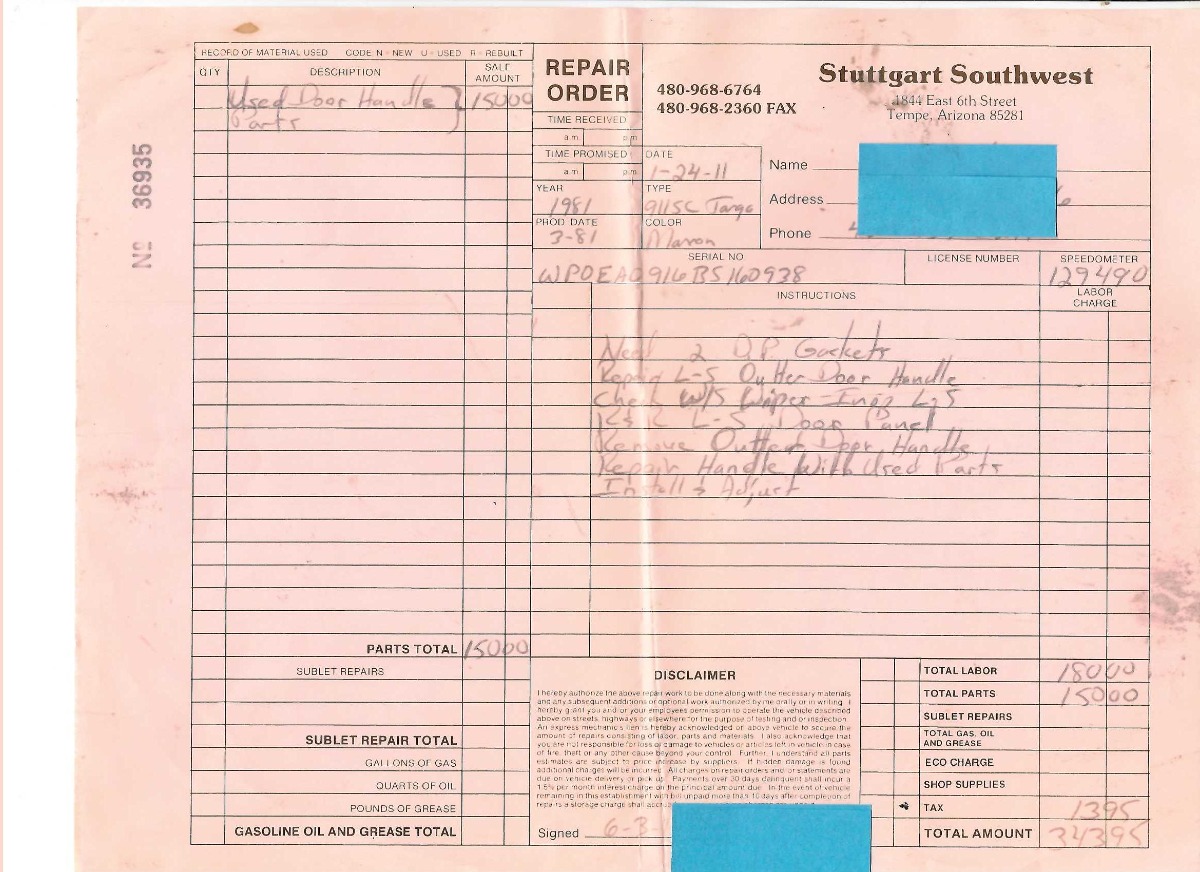 RECORD OF MATERIAL USED CODE N - NEW U - USED R - REBUILT
QTY DESCRIPTION SALE AMOUNT
Used Door Handle } 15000
Parts
Nº 36935
PARTS TOTAL 15000
SUBLET REPAIRS
SUBLET REPAIR TOTAL
GALLONS OF GAS
QUARTS OF OIL
POUNDS OF GREASE
GASOLINE OIL AND GREASE TOTAL
REPAIR ORDER
480-968-6764
480-968-2360 FAX
Stuttgart Southwest
1844 East 6th Street
Tempe, Arizona 85281
TIME RECEIVED
a.m. p.m.
TIME PROMISED
a.m. p.m.
DATE
1-24-11
YEAR
1981
TYPE
911SC Targa
PROD DATE
3-81
COLOR
Maron
Name
Address
Phone
SERIAL NO
WP0EA0916BS160938
LICENSE NUMBER
SPEEDOMETER
129490
INSTRUCTIONS
LABOR CHARGE
Need 2 O.P. Gackets
Repair L-S Outter Door Handle
Check W/S Wiper
R & R L-S Door Panel
Remove Outter Door Handle
Repair Handle With Used Parts
Install & Adjust
DISCLAIMER
I hereby authorize the above repair work to be done along with the necessary materials
and any subsequent additions or optional work authorized by me orally or in writing. I
hereby grant you and/or your employees permission to operate the vehicle described
above on streets, highways or elsewhere for the purpose of testing and/or inspection.
An express mechanics lien is hereby acknowledged on above vehicle to secure the
amount of repairs consisting of labor, parts and materials. I also acknowledge that
you are not responsible for loss or damage to vehicles or articles left in vehicle in case
of fire, theft or any other cause beyond your control. Further, I understand all parts
estimates are subject to price increase by suppliers. If hidden damage is found
additional charges will be incurred. All charges on repair orders and/or statements are
due on vehicle delivery or pick up. Payments over 30 days delinquent shall incur a
1.5% per month interest charge on the principal amount due. In the event of vehicle
remaining in this establishment with bill unpaid more than 10 days after completion of
repairs a storage charge shall
Signed 6-3-
TOTAL LABOR 18000
TOTAL PARTS 15000
SUBLET REPAIRS
TOTAL GAS, OIL AND GREASE
ECO CHARGE
SHOP SUPPLIES
TAX 1395
TOTAL AMOUNT 34395